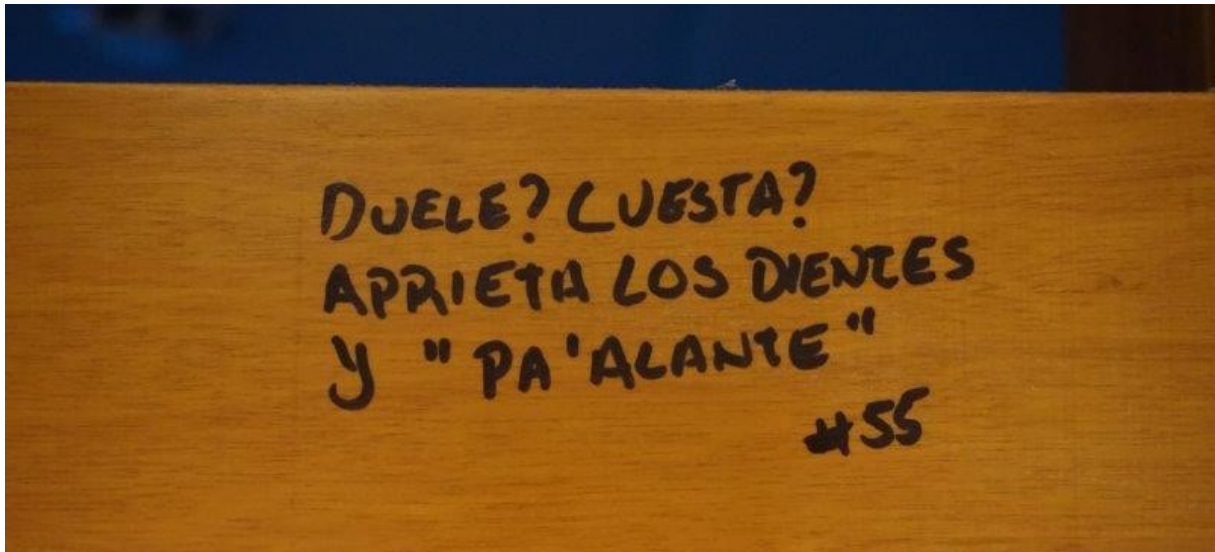 DUELE? CUESTA?
APRIETA LOS DIENTES
Y "PA'ALANTE"
#55